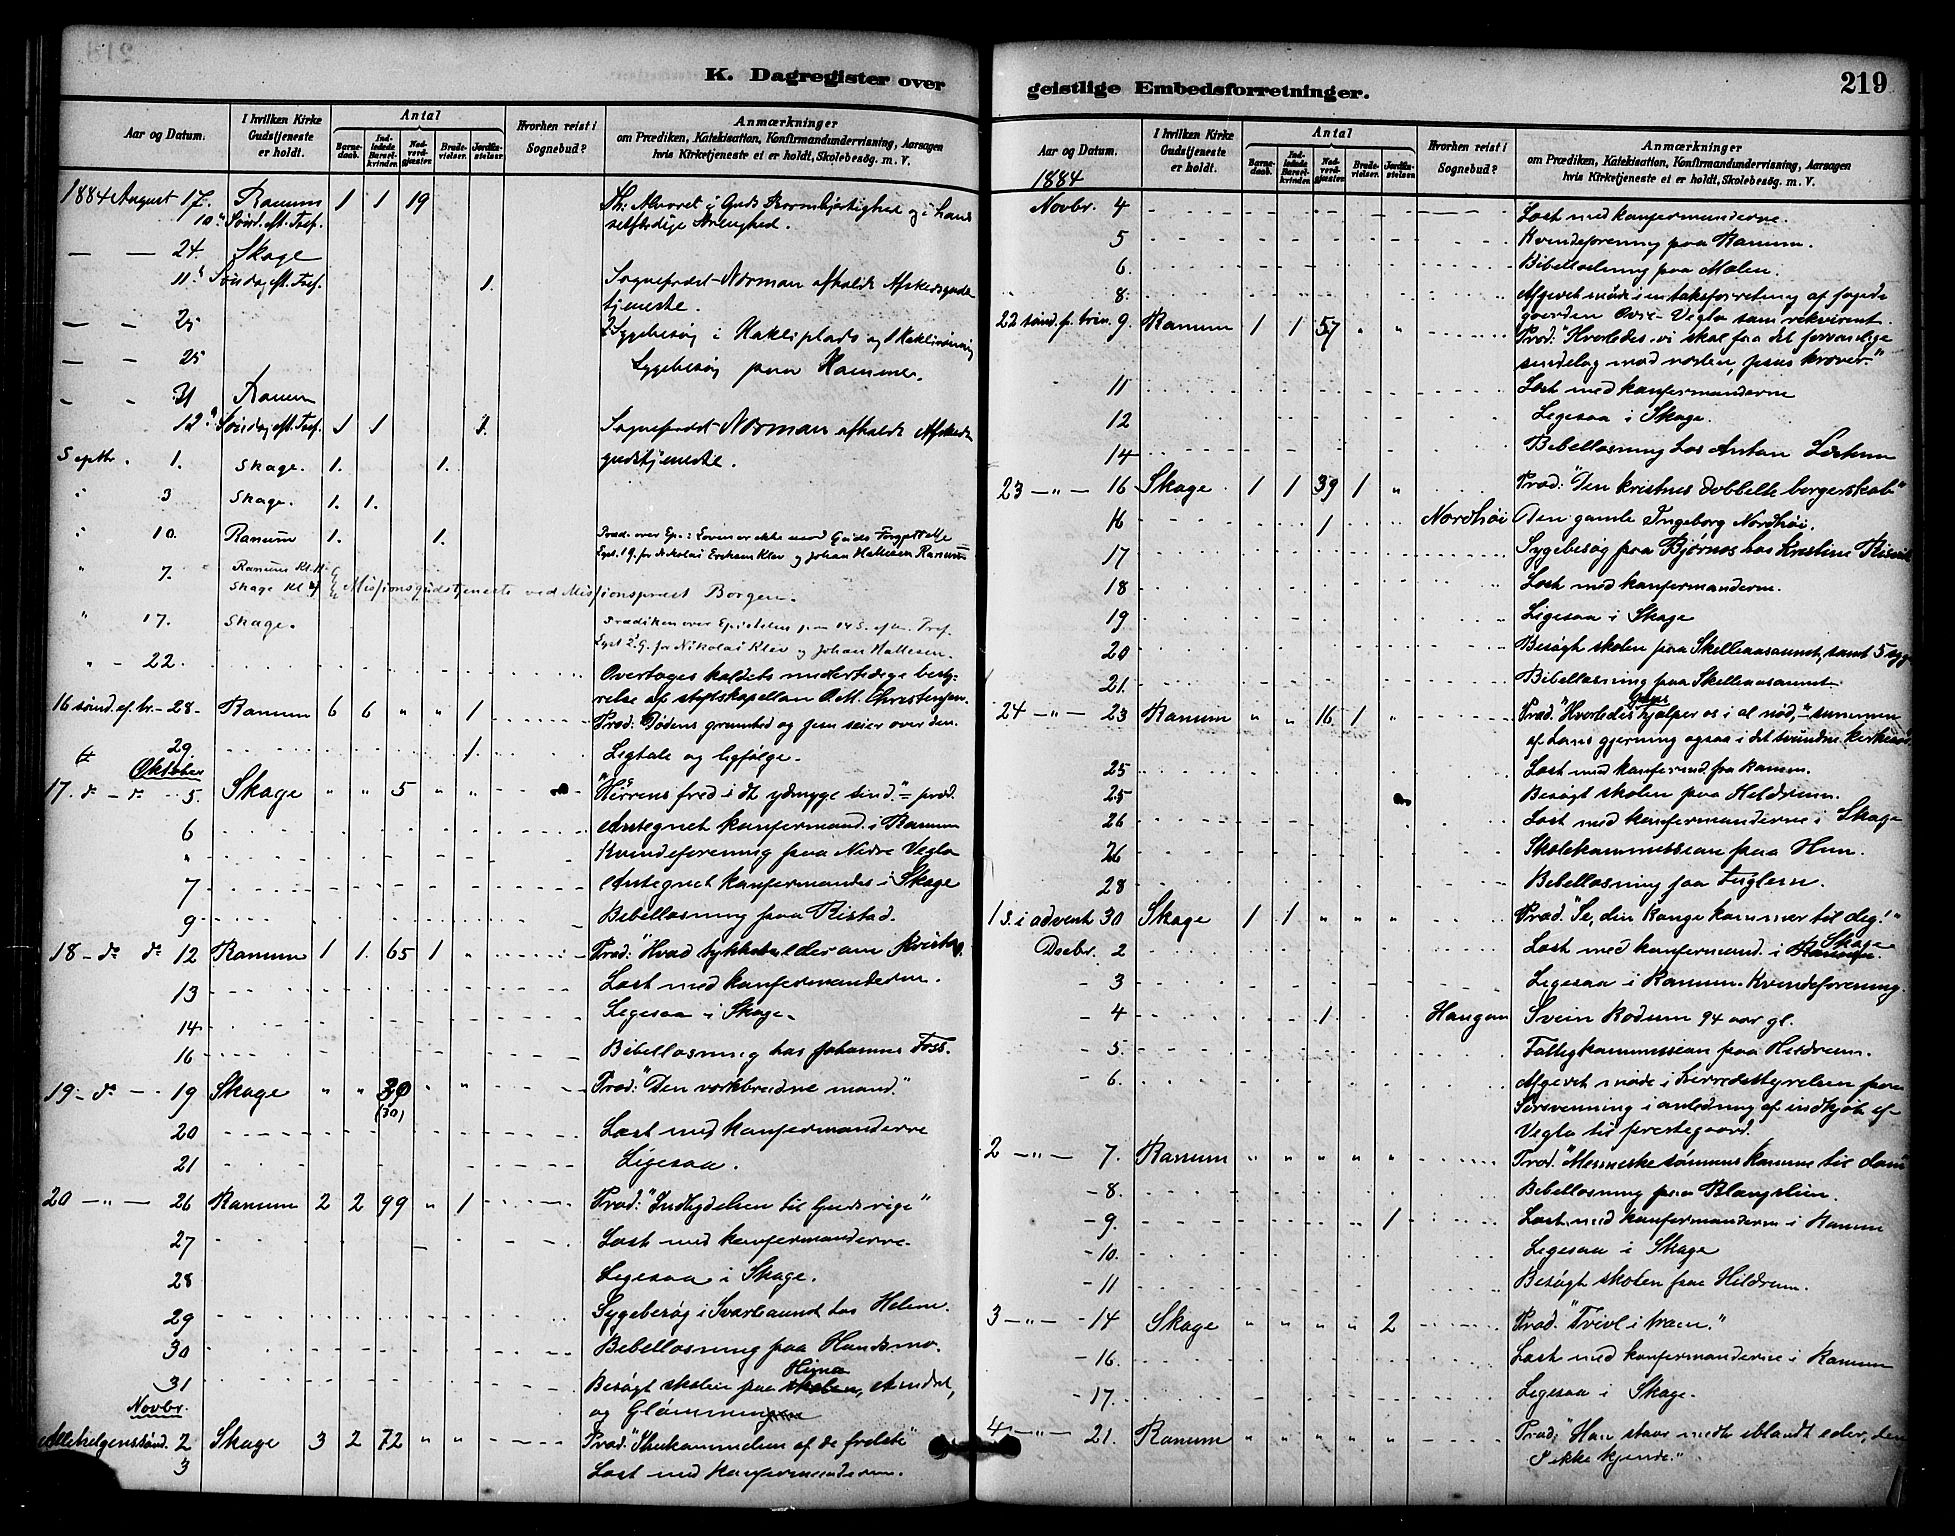 K. Dagregister over
Aar og Datum.
I hvilken Kirke Gudstjeneste er holdt.
Antal
Barnedaab.
Indledede Barselkvinder.
Nadverdgjæster.
Brudevielser.
Jordfæstelser.
Hvorhen reist i Sognebud?
Anmærkninger
om Prædiken, Katekisation, Konfirmandundervisning, Aarsagen
hvis Kirketjeneste ei er holdt, Skolebesøg. m. V.
1884 August 17. Ranum 1 1 19 Th: Alvoret i Guds Barmhjertighed og i hans
10de Sønd. eft. Tref.
— — 24. Skage
11te Søndag eft. Tref. 1. Sogneprest Norman afholdt Afskedsguds
tjeneste.
— — 25 Sygebesøg i Hakliplads og
— — 25 Sygebesøg paa Hammer.
- - 31 Ranum
12te Søndag eft. Tref. 1 1 1. Sogneprest Norman afholdt Afskeds
gudstjeneste.
Septbr. 1. Skage. 1. 1.
3 Skage. 1. 1.
10. Ranum 1. 1. Præd. over Ep.: Loven er ikke mod Guds Forjættelse
Lyst 1 G. for Nikolai Eriksen Klev og Johan Hallesen Ranum
" 7. Ranum Kl.
Skage Kl. 4 Missionsgudstjeneste ved Missionsprest Borgen.
" 17. Skage. Prædiken over Epistelen paa 14 S. efter Tref.
Lyst 2 G. for Nikolai Klev og Johan Hallesen.
" - 22. Overtoges kaldets midlertidige besty-
relse af stiftskapellan O. M. Christensen.
16 sønd. ef. tr. - 28. Ranum 6 6 " " 1 Præd: Dødens grumhed og Jesu seier over den.
29. 1. Ligtale og ligfølge.
Oktober
17. do - do 5. Skage " " 5 " " "Herrens fred i et ydmyge sind." = præd.
6 Antegnet konfermand. i Ranum
" Kvindeforening paa Nedre Vegla
7 Antegnet konfermandes i Skage
9 Bibellæsning paa Ristad.
18 - do do 12 Ranum 1 1. 65 1 " Præd: "Hvad tykkes eder om Kristus.
13 Læst med konfermanderne.
14 Ligesaa i Skage.
16 Bibellæsning hos Johannes Foss.
19 - do - 19 Skage " " 39 " " Præd: "Den værkbrudne mand."
(30)
20 Læst med konfermanderne
21 Ligesaa.
20 - " - 26 Ranum 2 2 99 " 1 Præd: "Indbydelsen til Guds rige"
27 Læst med konfermanderne.
28 Ligesaa i Skage.
29 Sygebesøg i hos Helene.
30 Bibellæsning paa Hundsmo.
31 Besøgt skolen paa Himo skolen,
Novbr. og Glømmen
Allehelgenssønd. 2 Skage 3 2 72 " " Præd: af de frelste"
3 Læst med konfermanderne.
geistlige Embedsforretninger.
219
Aar og Datum.
I hvilken Kirke Gudstjeneste er holdt.
Antal
Barnedaab.
Indledede Barselkvinder.
Nadverdgjæster.
Brudevielser.
Jordfæstelser.
Hvorhen reist i Sognebud?
Anmærkninger
om Prædiken, Katekisation, Konfirmandundervisning, Aarsagen
hvis Kirketjeneste ei er holdt, Skolebesøg. m. V.
1884
Novbr. 4 Læst med konfermanderne.
5 Kvindeforening paa Ranum.
6. Bibellæsning paa Mælen.
8. Afgivet møde i en takstforretning af foged-
gaarden Øvre Vegla som rekvirent.
22 sønd. f. trin. 9. Ranum 1 1 57 " " Præd: "Hvorledes vi skal faa det forsonlige
sindelag mod næsten, Jesus kræver."
11 Læst med konfermanderne
12 Ligesaa i Skage.
14 Bibellæsning hos Anton
23 - " - 16 Skage 1 1 39 1 " Præd: "Den kristnes dobbelte borgerskab"
16 1 Nordhøi Den gamle Ingeborg Nordhøi.
17 Sygebesøg paa Bjørnes hos Kristine
18 Læst med konfermanderne.
19 Ligesaa i Skage
20 Besøgt skolen paa samt 5 syge
21. Bibellæsning paa
24 - " - 23 Ranum " " 16. 1 " Præd: "Hvorledes Jesus hjælper os i al nød, = summen
af hans gjerning ogsaa i det svundne kirkeaar.
25 Læst med konfermand. fra Ranum.
25 Besøgt skolen paa Heldrum.
26 Læst med konfermanderne i Skage
26 Skolekommission paa Hun.
28 Bibellæsning paa Fuglem.
1 s. i advent 30 Skage 1 1 " " " Præd. "Se, din konge kommer til dig!"
Decbr. 2 Læst med konfermand. i Ranum Skage
- 3 Ligesaa i Ranum. Kvindeforening.
- 4 1 Haugan Svein Rodum 94 aar gl.
- 5. Fattigkommission paa Heldrum.
- 6. Afgivet møde i herredsstyrelsen paa
i anledning af indkjøb af
Vegla til prestegaard.
2 - " - 7. Ranum " " " " " Præd. "Menneskesønnens komme til dom"
- 8. Bibellæsning paa Blengslien.
- 9. 1 Læst med konfermanderne i Ranum
- 10. Ligesaa i Skage
- 11 Besøgt skolen paa Heldrum.
3 - " - - 14 Skage " " " " 2 Præd. "Tvivl i troen."
- 16. Læst med konfermanderne i Ranum
- 17. Ligesaa i Skage.
4 - " - 21. Ranum " " " " " Præd: "Han staar midt iblandt eder, den
I ikke kjende."